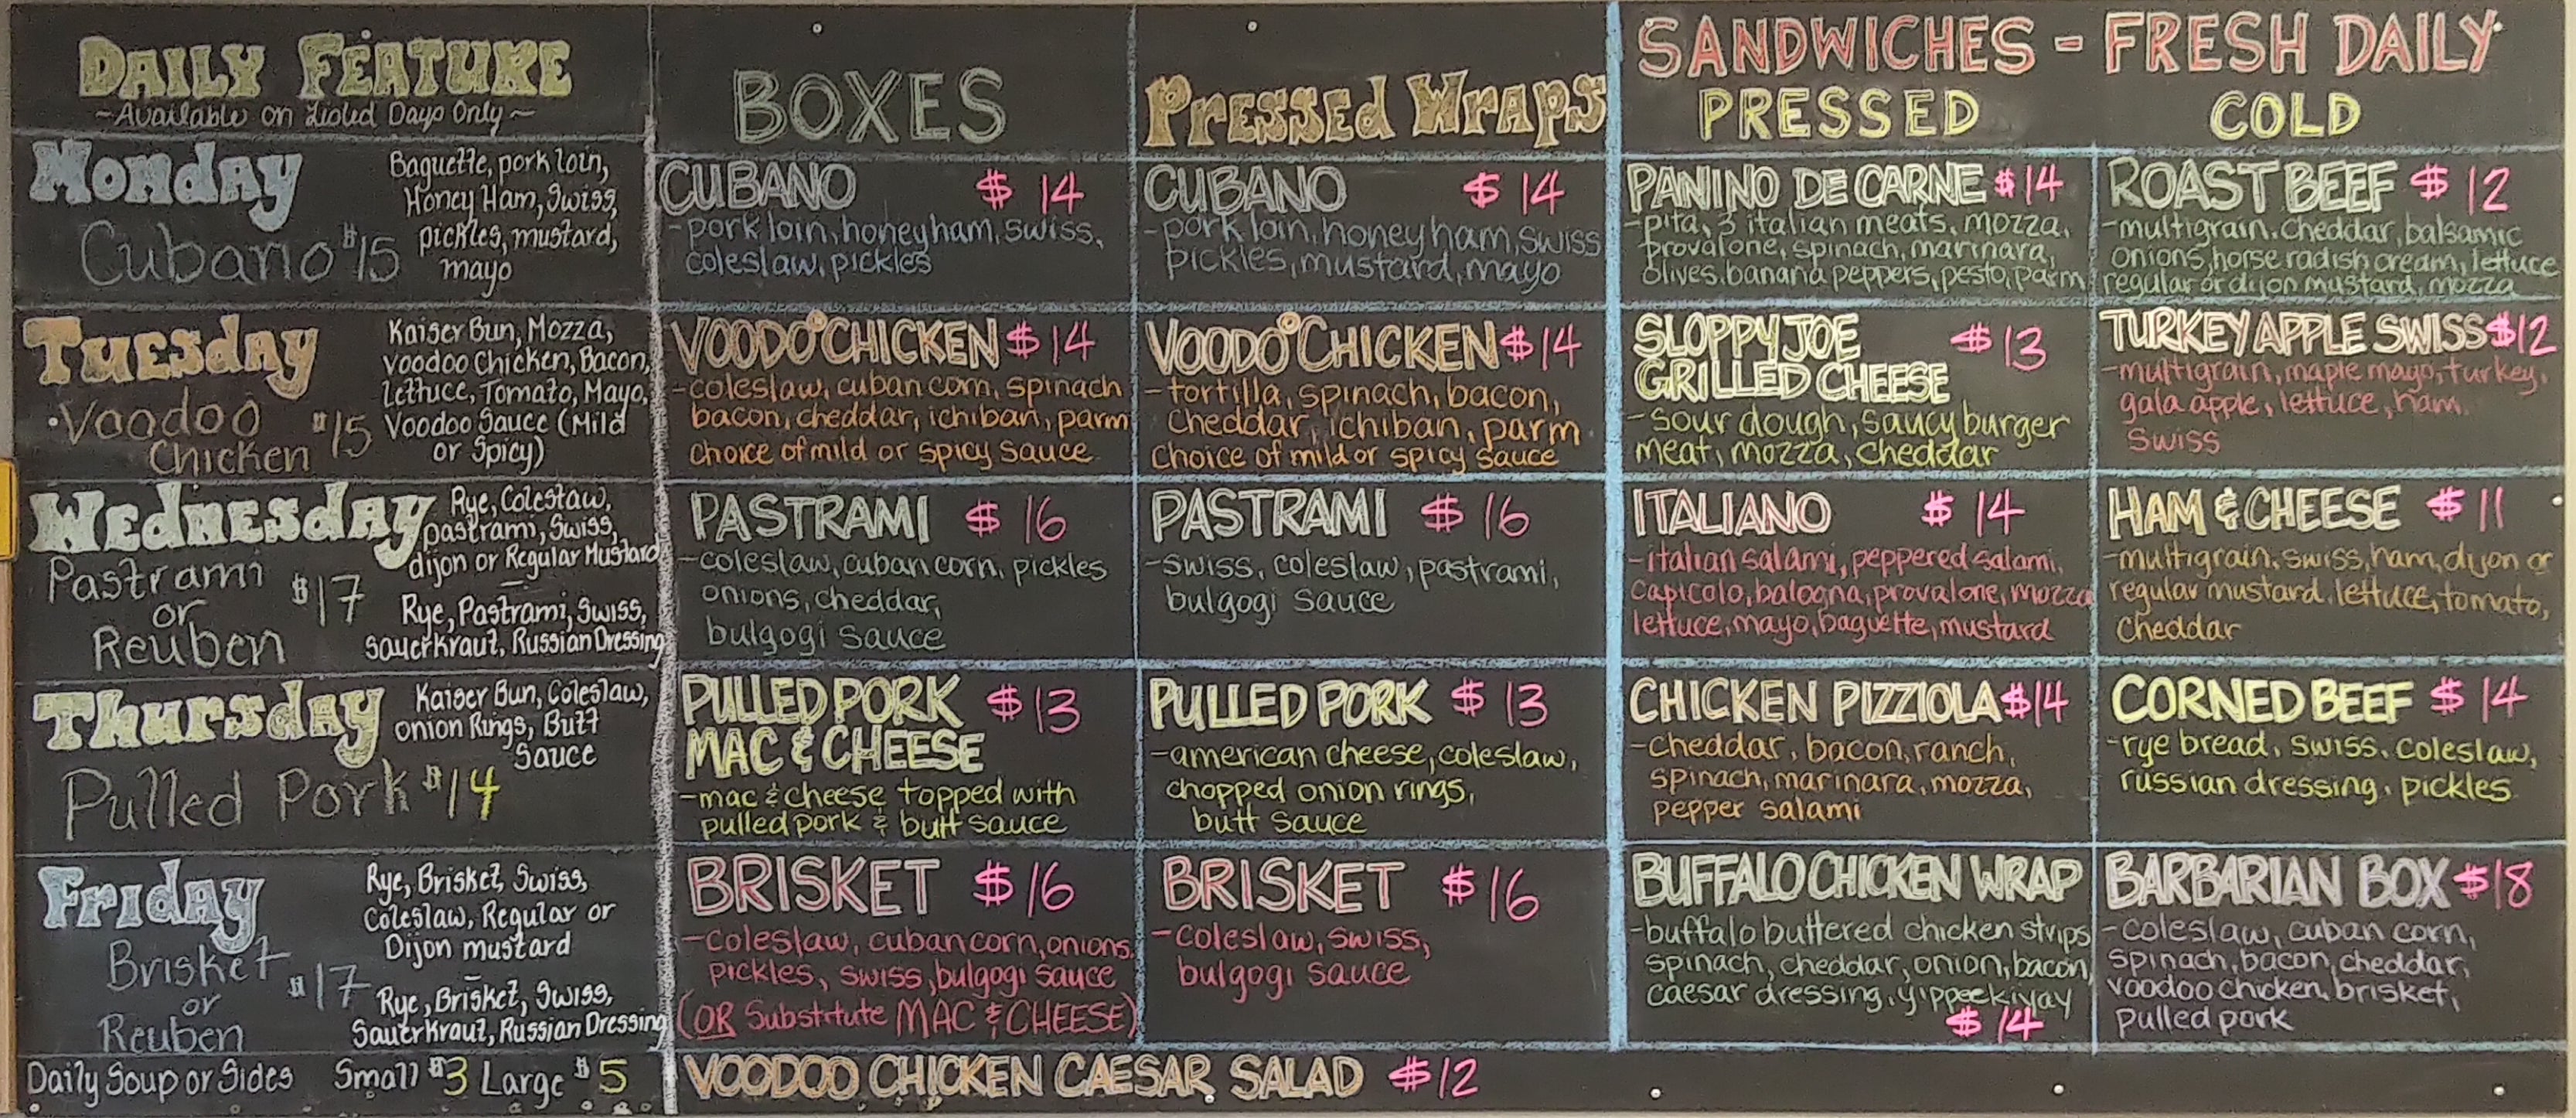 DAILY FEATURE
~Available on Listed Days Only~
Monday
Cubano $15
Baguette, pork loin,
Honey Ham, Swiss,
pickles, mustard,
mayo
Tuesday
Voodoo
Chicken $15
Kaiser Bun, Mozza,
Voodoo Chicken, Bacon,
Lettuce, Tomato, Mayo,
Voodoo Sauce (Mild
or Spicy)
Wednesday
Pastrami
or
Reuben
$17
Rye, Coleslaw,
pastrami, Swiss,
dijon or Regular Mustard
—
Rye, Pastrami, Swiss,
Sauerkraut, Russian Dressing
Thursday
Pulled Pork $14
Kaiser Bun, Coleslaw,
onion Rings, Butt
Sauce
Friday
Brisket
or
Reuben
$17
Rye, Brisket, Swiss,
Coleslaw, Regular or
Dijon mustard
—
Rye, Brisket, Swiss,
Sauerkraut, Russian Dressing
Daily Soup or Sides Small $3 Large $5
BOXES
CUBANO $14
-pork loin, honey ham, swiss,
coleslaw, pickles
VOODOO CHICKEN $14
-coleslaw, cuban corn, spinach
bacon, cheddar, ichiban, parm
choice of mild or spicy sauce
PASTRAMI $16
-coleslaw, cuban corn, pickles
onions, cheddar,
bulgogi sauce
PULLED PORK $13
MAC & CHEESE
-mac & cheese topped with
pulled pork & butt sauce
BRISKET $16
-coleslaw, cuban corn, onions,
pickles, swiss, bulgogi sauce
(OR Substitute MAC & CHEESE)
Pressed Wraps
CUBANO $14
-pork loin, honey ham, swiss
pickles, mustard, mayo
VOODOO CHICKEN $14
-tortilla, spinach, bacon,
cheddar, ichiban, parm
choice of mild or spicy sauce
PASTRAMI $16
-swiss, coleslaw, pastrami,
bulgogi sauce
PULLED PORK $13
-american cheese, coleslaw,
chopped onion rings,
butt sauce
BRISKET $16
-coleslaw, swiss,
bulgogi sauce
VOODOO CHICKEN CAESAR SALAD $12
SANDWICHES - FRESH DAILY
PRESSED
PANINO DE CARNE $14
-pita, 3 italian meats, mozza,
provalone, spinach, marinara,
olives, banana peppers, pesto, parm
SLOPPY JOE $13
GRILLED CHEESE
-sour dough, saucy burger
meat, mozza, cheddar
ITALIANO $14
-italian salami, peppered salami,
capicolo, balogna, provalone, mozza
lettuce, mayo, baguette, mustard
CHICKEN PIZZIOLA $14
-cheddar, bacon, ranch,
spinach, marinara, mozza,
pepper salami
BUFFALO CHICKEN WRAP
-buffalo buttered chicken strips
spinach, cheddar, onion, bacon,
caesar dressing, yippeekiyay
$14
COLD
ROAST BEEF $12
-multigrain, cheddar, balsamic
onions, horse radish cream, lettuce
regular or dijon mustard, mozza
TURKEY APPLE SWISS $12
-multigrain, maple mayo, turkey,
gala apple, lettuce, ham,
swiss
HAM & CHEESE $11
-multigrain, swiss, ham, dijon or
regular mustard, lettuce, tomato,
cheddar
CORNED BEEF $14
-rye bread, swiss, coleslaw,
russian dressing, pickles
BARBARIAN BOX $18
-coleslaw, cuban corn,
spinach, bacon, cheddar,
voodoo chicken, brisket,
pulled pork